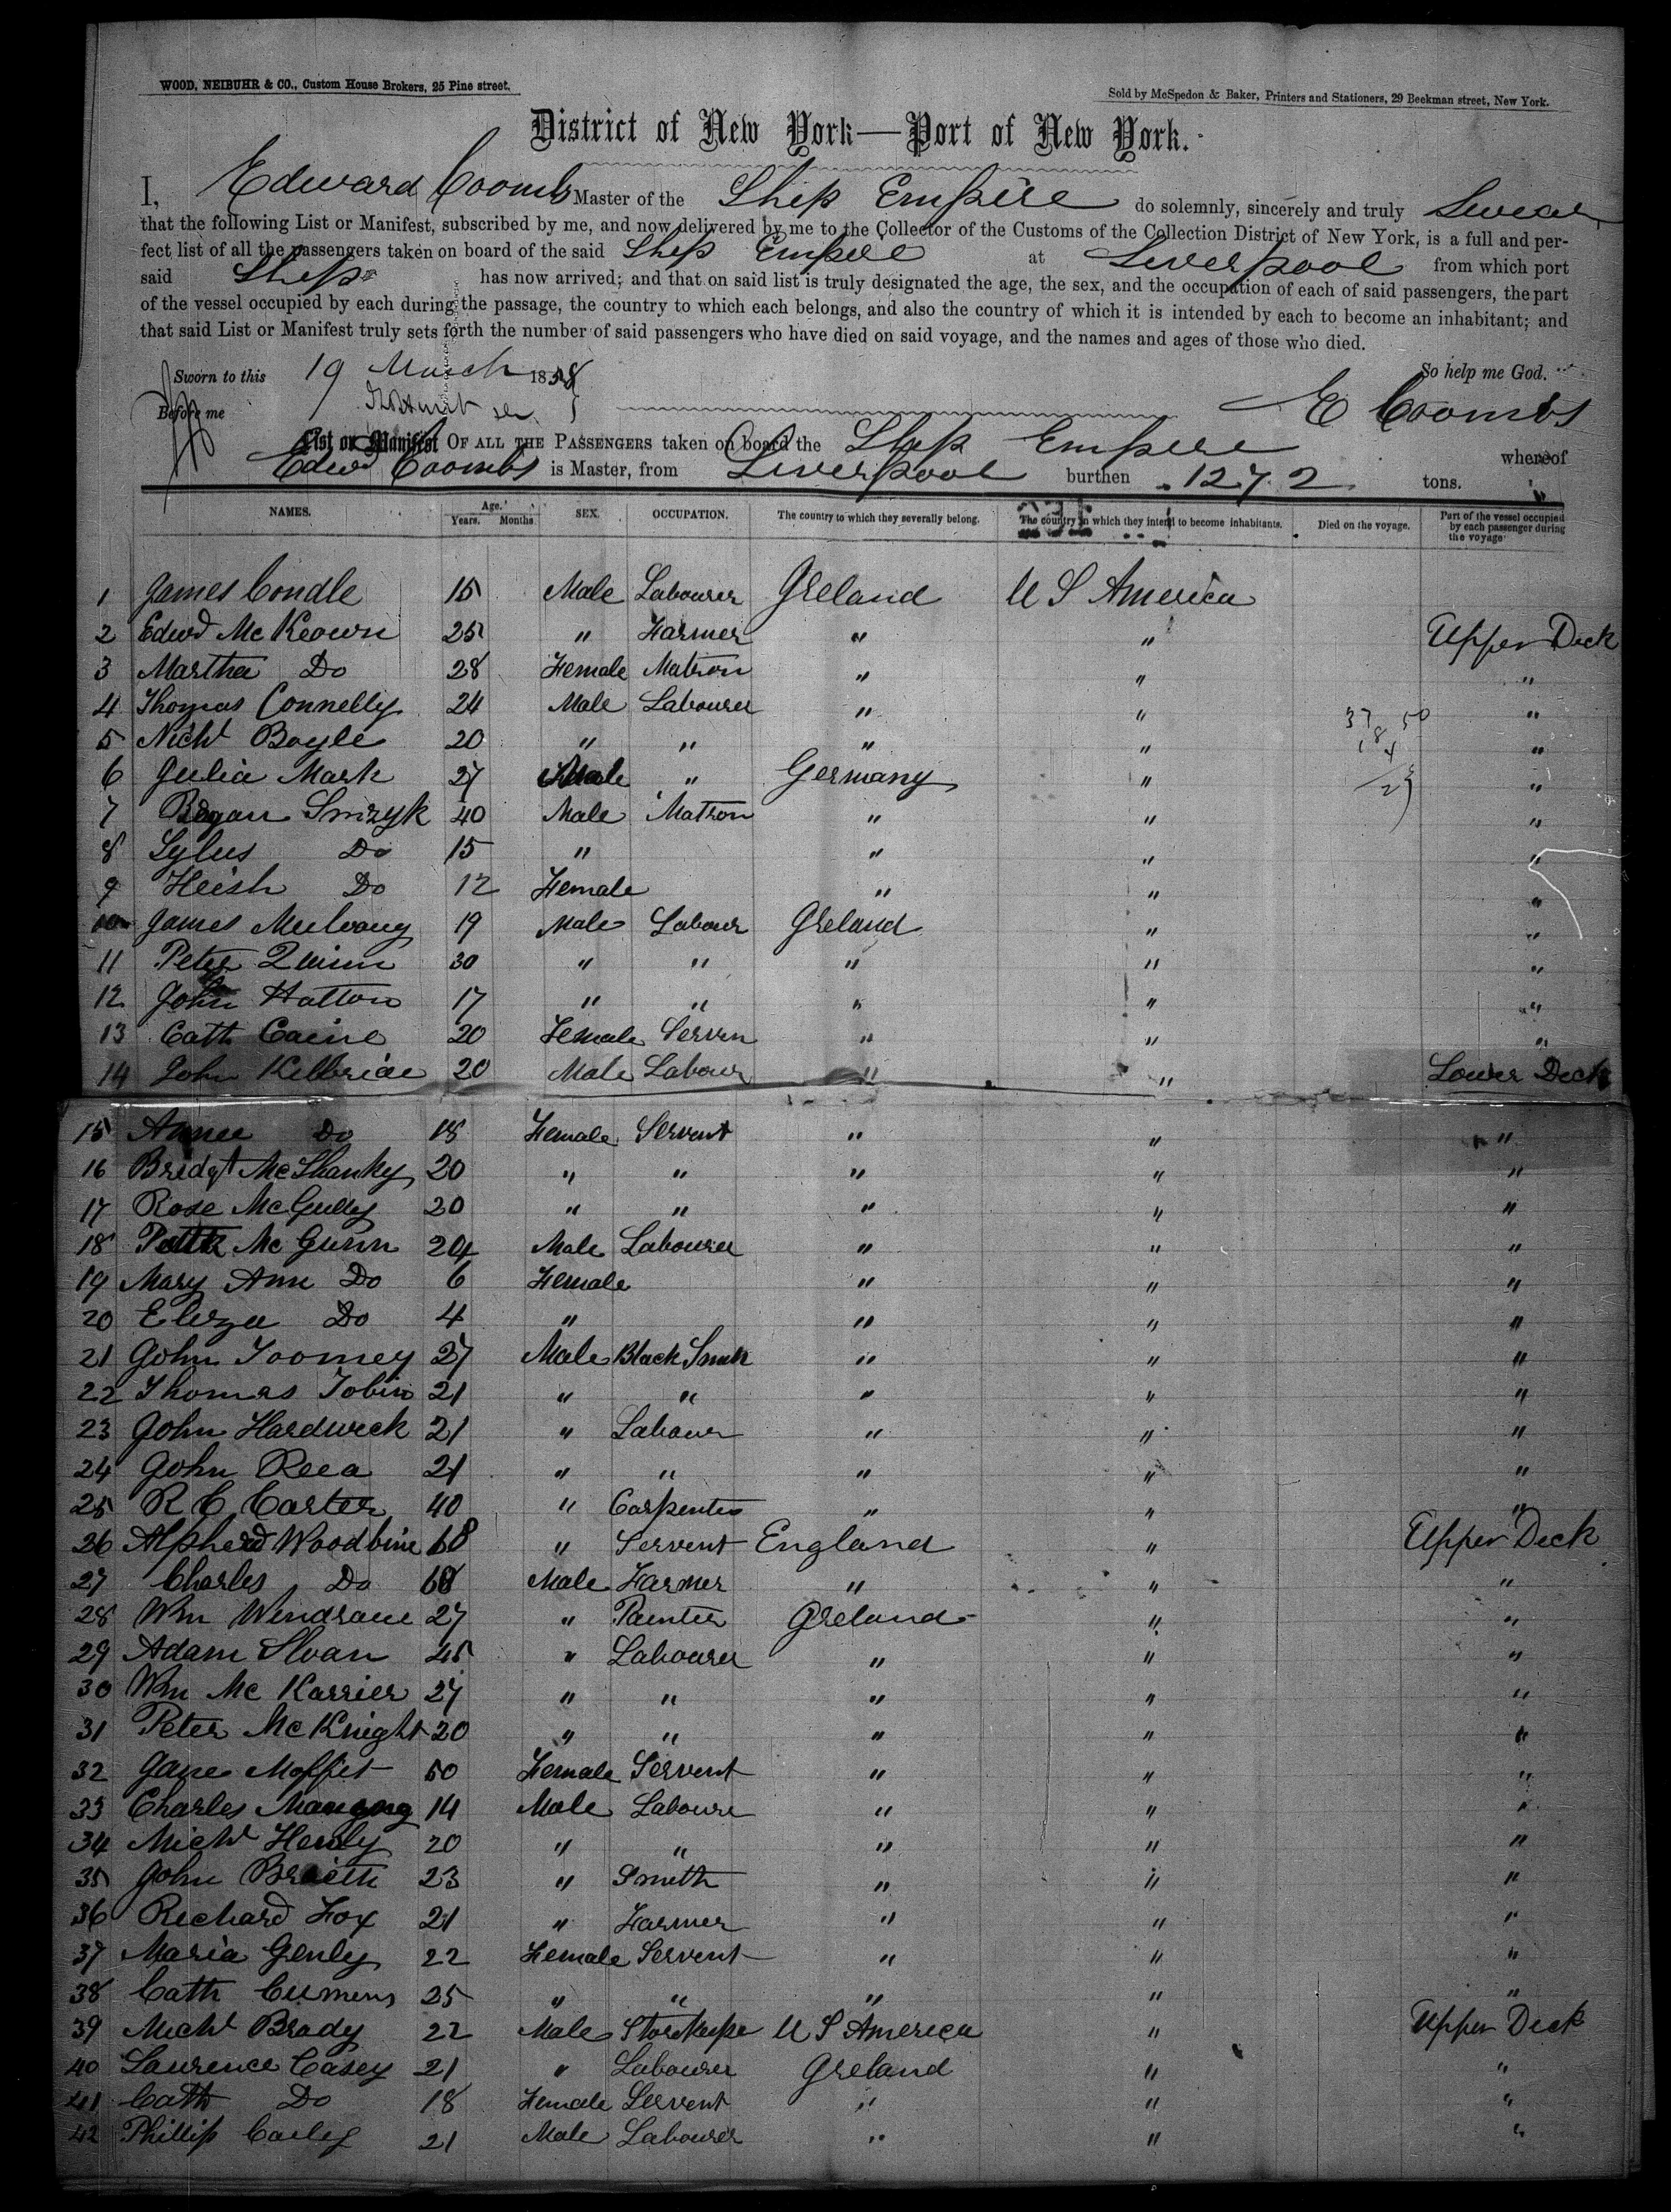 WOOD, NEIBUHR & CO., Custom House Brokers, 25 Pine street.
Sold by McSpedon & Baker, Printers and Stationers, 29 Beekman street, New York.
District of New York—Port of New York.
I, Edward Coombs Master of the Ship Empire do solemnly, sincerely and truly Swear
that the following List or Manifest, subscribed by me, and now delivered by me to the Collector of the Customs of the Collection District of New York, is a full and per-
fect list of all the passengers taken on board of the said Ship Empire at Liverpool from which port
said Ship has now arrived; and that on said list is truly designated the age, the sex, and the occupation of each of said passengers, the part
of the vessel occupied by each during the passage, the country to which each belongs, and also the country of which it is intended by each to become an inhabitant; and
that said List or Manifest truly sets forth the number of said passengers who have died on said voyage, and the names and ages of those who died.
Sworn to this 19 March 1858 So help me God.
Before me E Coombs
List or Manifest OF ALL THE PASSENGERS taken on board the Ship Empire whereof
Edwd Coombs is Master, from Liverpool burthen 1272 tons.
NAMES. Age. Years. Months. SEX. OCCUPATION. The country to which they severally belong. The country in which they intend to become inhabitants. Died on the voyage. Part of the vessel occupied by each passenger during the voyage
1 James Condle 15 Male Labourer Ireland U S America
2 Edwd Mc Keown 25 " Farmer " " Upper Deck
3 Martha Do 28 Female Matron " " "
4 Thomas Connelly 24 Male Labourer " " "
5 Nichl Boyle 20 " " " " "
6 Julia Mark 27 " Germany " "
7 Smzyk 40 Male Matron " " "
8 Sylus Do 15 " " " "
9 Heish Do 12 Female " " "
10 James Mulvany 19 Male Labour Ireland " "
11 Peter Quinn 30 " " " " "
12 John Hatton 17 " " " " "
13 Cath Caine 20 Female Serven " " "
14 John Kilbride 20 Male Labour " " Lower Deck
15 Annee Do 18 Female Servent " " "
16 Bridgt McShanky 20 " " " " "
17 Rose McGully 20 " " " " "
18 Pattk Mc Gunn 24 Male Labourer " " "
19 Mary Ann Do 6 Female " " "
20 Eliza Do 4 " " " "
21 John Toomey 27 Male Black Smith " " "
22 Thomas Tobin 21 " " " " "
23 John Hardwick 21 " Labour " " "
24 John Reea 21 " " " " "
25 R C Carter 40 " Carpenter " " "
26 Alpherd Woodbine 68 " Servent England " Upper Deck
27 Charles Do Male Farmer " " "
28 Wm Windrane 27 " Painter Ireland " "
29 Adam Sloan 45 " Labourer " " "
30 Wm Mc Karrier 27 " " " " "
31 Peter McKnight 20 " " " " "
32 Jane Moffit 50 Female Servent " " "
33 Charles 14 Male Laboure " " "
34 Michl Henly 20 " " " " "
35 John 23 " Smith " " "
36 Richard Fox 21 " Farmer " " "
37 Maria Genley 22 Female Servent " " "
38 Cath Cumens 25 " " " " "
39 Michl Brady 22 Male Storekeepe U S America " Upper Deck
40 Laurence Casey 21 " Labourer Ireland " "
41 Cath Do 18 Female Servent " " "
42 Phillip Carley 21 Male Labourer " " "